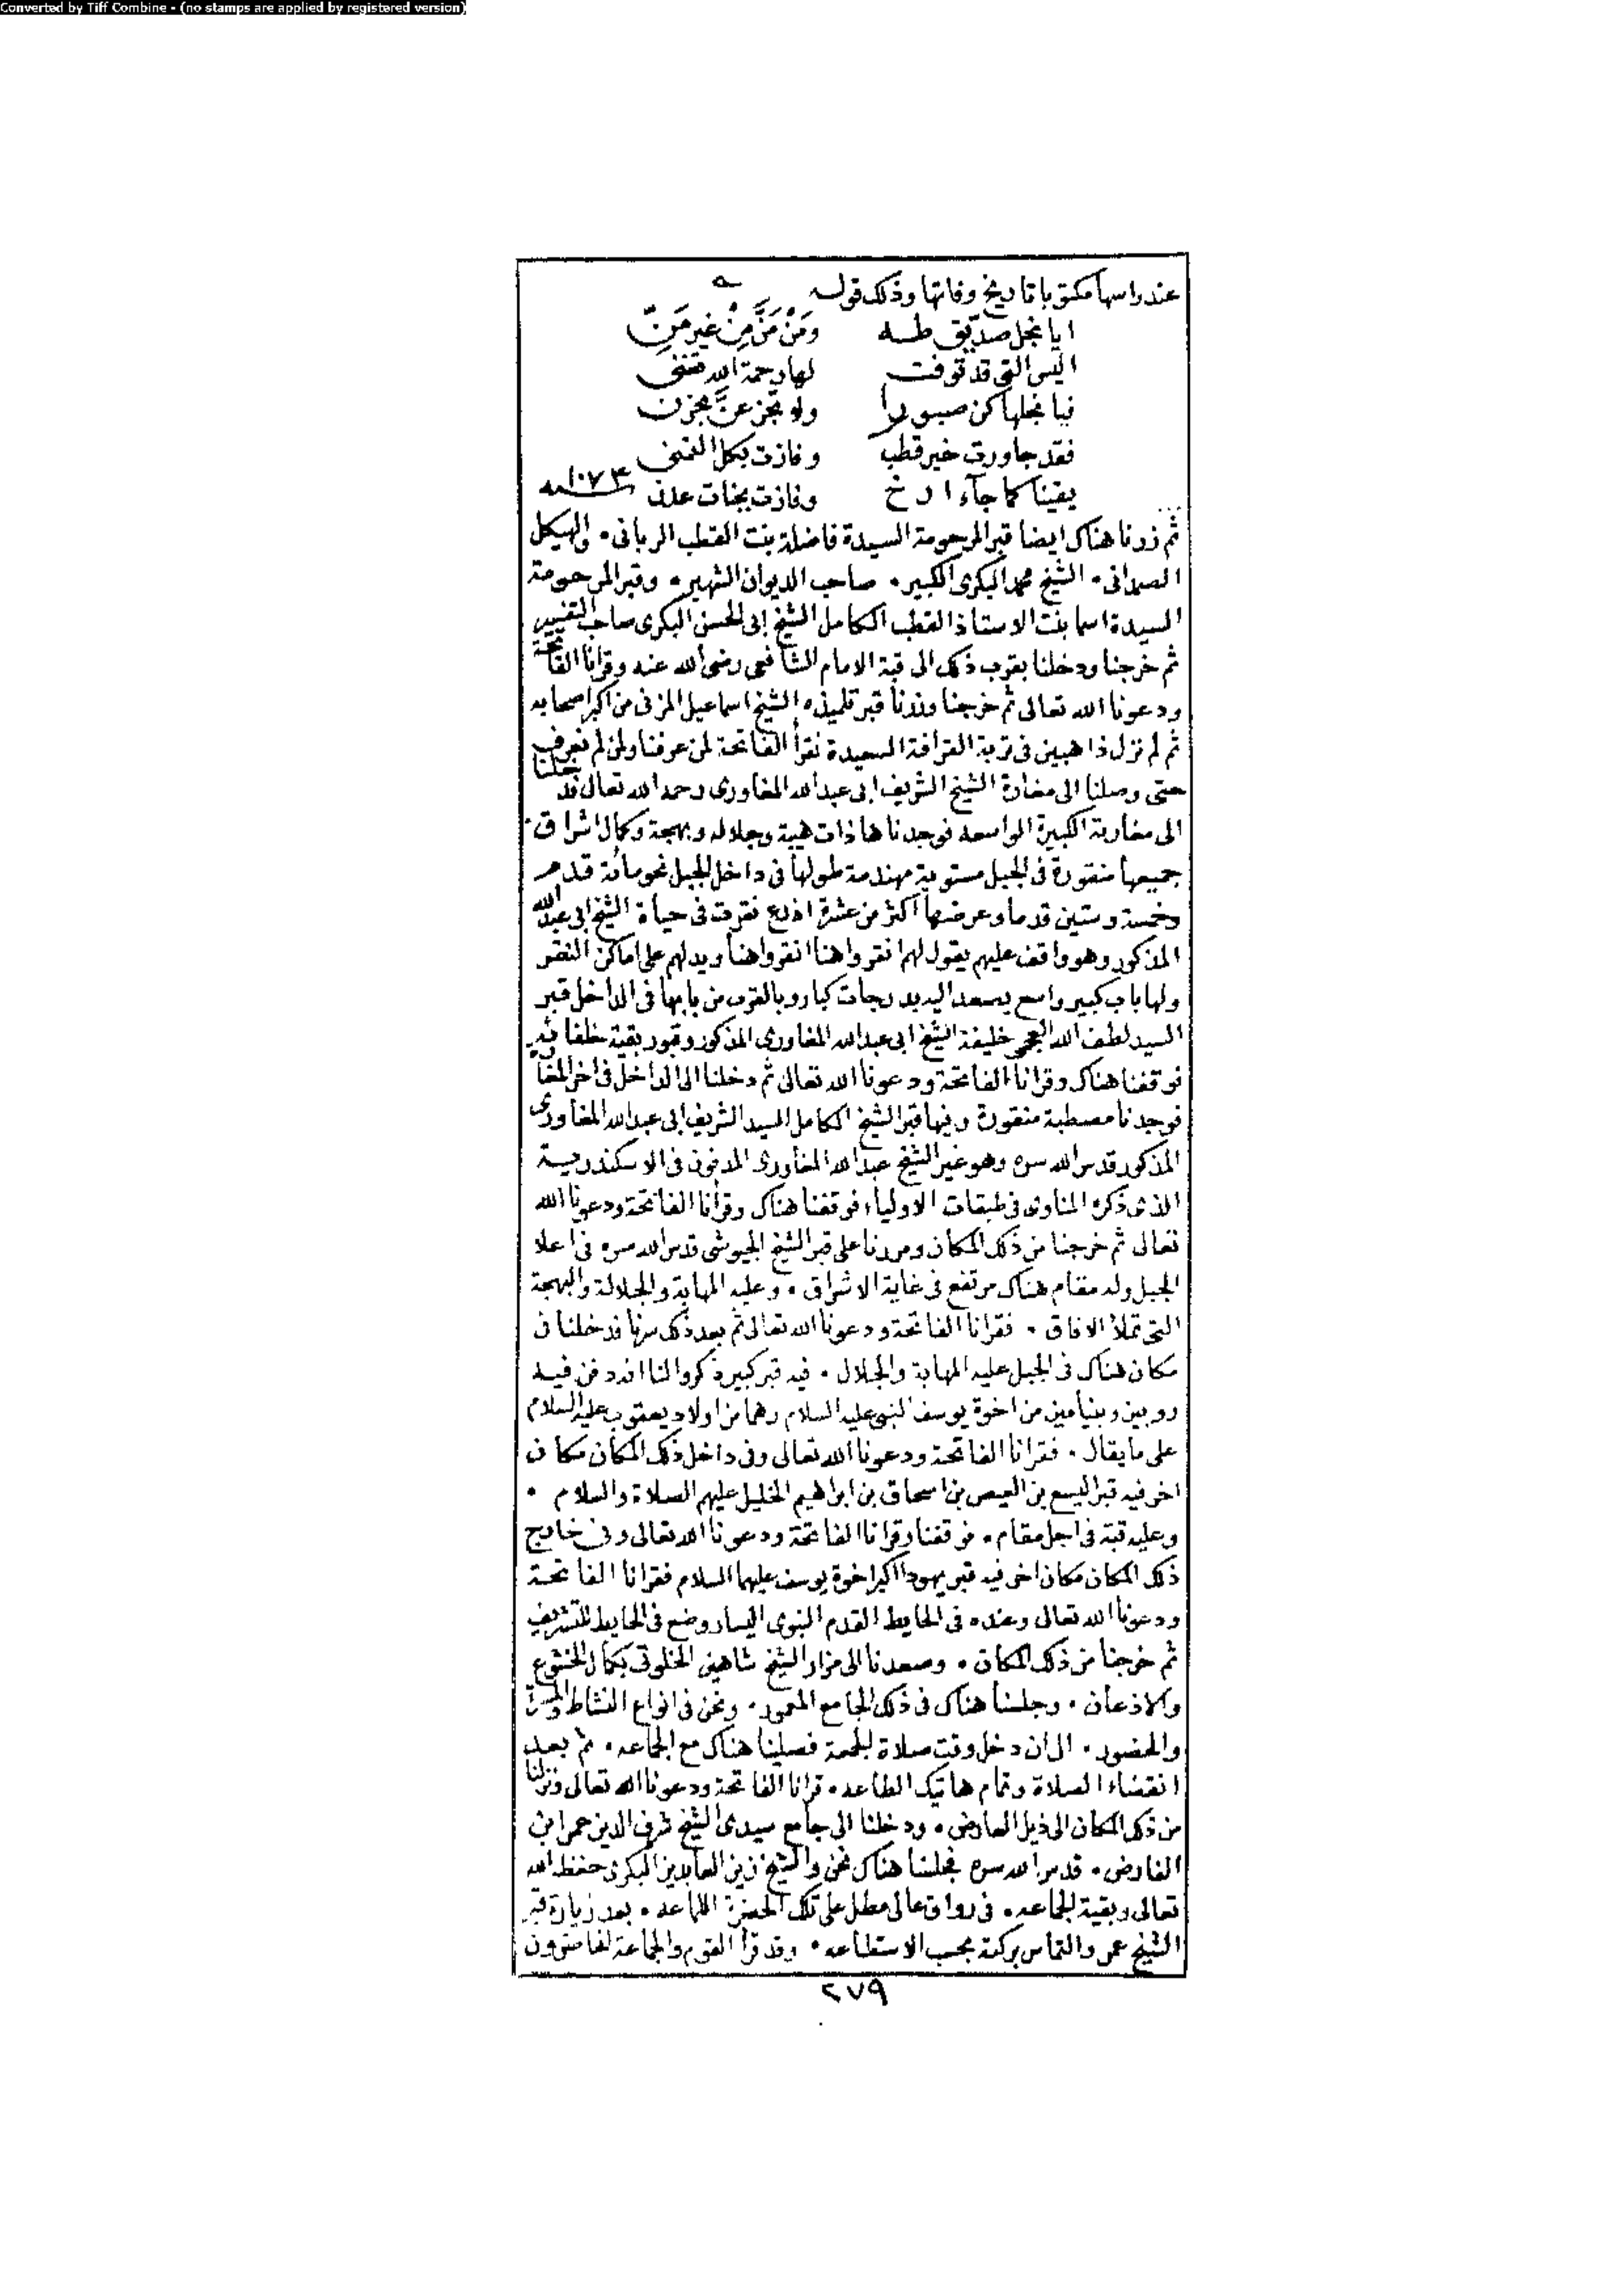 Converted by Tiff Combine - (no stamps are applied by registered version)
عند راسها مكتوبا تاريخ وفاتها وذلك قوله
ايا نجل صديق طه ومن منّ من غير منّ
اليس التي قد توفت لها رحمة الله تثنى
فيا نجلها كن صبورا ولا تجزعنّ بحزن
فقد جاورت خير قطب وفازت بكل التمنى
يقينا كما جآء ارخ وفازت بجنات عدن ١٠٧٣
ثم زرنا هناك ايضا قبر المرحومة السيدة فاضلة بنت القطب الربانى . والهيكل
الصمدانى . الشيخ محمد البكرى الكبير . صاحب الديوان الشهير . وقبر المرحومة
السيدة اسما بنت الاستاذ القطب الكامل الشيخ ابى الحسن البكرى صاحب التفسير
ثم خرجنا ودخلنا بقرب ذلك الى قبة الامام الشافعى رضى الله عنه وقرانا الفاتحة
ودعونا الله تعالى ثم خرجنا وزرنا قبر تلميذه الشيخ اسماعيل المزنى من اكبر اصحابه
ثم لم نزل ذاهبين فى تربة القرافة السعيدة نقرأ الفاتحة لمن عرفنا ولمن لم نعرف
حتى وصلنا الى مغارة الشيخ الشريف ابى عبد الله المغاورى رحمه الله تعالى فدخلنا
الى مغارته الكبيرة الواسعه فوجدناها ذات هيبة وجلاله وبهجة وكمال اشراق .
جميعها منقورة فى الجبل مستوية مهندمة طولها فى داخل الجبل نحو مائة قدم
وخمسة وستين قدما وعرضها اكثر من عشرة اذرع نقرت فى حياة الشيخ ابى عبد الله
المذكور وهو واقف عليهم يقول لهم انقروا هنا انقروا هنا ويدلهم على اماكن النقر
ولها باب كبير واسع يصعد اليه بدرجات كبار وبالقرب من بابها فى الداخل قبر
السيد لطف الله العجمى خليفة الشيخ ابى عبد الله المغاورى المذكور وقبور بقية خلفائه
فوقفنا هناك وقرانا الفاتحة ودعونا الله تعالى ثم دخلنا الى الداخل فى اخر المغا
فوجدنا مصطبة منقورة وفيها قبر الشيخ الكامل السيد الشريف ابى عبد الله المغاورى
المذكور قدس الله سره وهو غير الشيخ عبد الله المغاورى المدفون فى الاسكندرية
الذى ذكره المناوى فى طبقات الاولياء فوقفنا هناك وقرأنا الفاتحة ودعونا الله
تعالى ثم خرجنا من ذلك المكان ومررنا على قبر الشيخ الجيوشى قدس الله سره فى اعلا
الجبل وله مقام هناك مرتفع فى غاية الاشراق . وعليه المهابة والجلالة والبهجة
التى تملأ الافاق . فقرانا الفاتحة ودعونا الله تعالى ثم بعد ذلك سرنا فدخلنا فى
مكان هناك فى الجبل عليه المهابة والجلال . فيه قبر كبير ذكروا لنا انه دفن فيه
روبين وبنيامين من اخوة يوسف النبى عليه السلام وهما من اولاد يعقوب عليه السلام
على ما يقال . فقرانا الفاتحة ودعونا الله تعالى وفى داخل ذلك المكان مكان
اخر فيه قبر اليسع بن العيص بن اسحاق بن ابراهيم الخليل عليهم الصلاة والسلام .
وعليه قبة فى اجل مقام . فوقفنا وقرانا الفاتحة ودعونا الله تعالى وفى خارج
ذلك المكان مكان اخر فيه قبر يهودا اكبر اخوة يوسف عليهما السلام فقرانا الفاتحة
ودعونا الله تعالى وعنده فى الحايط القدم النبوى اليسار وضع فى الحايط للتشريف
ثم خرجنا من ذلك المكان . وصعدنا الى مزار الشيخ شاهين الخلوتى بكمال الخشوع
والاذعان . وجلسنا هناك فى ذلك الجامع المعمور . ونحن فى انواع النشاط والمسرة
والحضور . الى ان دخل وقت صلاة الجمعة فصلينا هناك مع الجماعه . ثم بعد
انقضاء الصلاة وتمام هاتيك الطاعه . قرانا الفاتحة ودعونا الله تعالى ونزلنا
من ذلك المكان الى ذيل العارض . ودخلنا الى جامع سيدى الشيخ شرف الدين عمر ابن
الفارض . قدس الله سره فجلسنا هناك نحن والشيخ زين العابدين البكرى حفظه الله
تعالى وبقية الجماعه . فى رواق عالى مطل على تلك الحضرة اللماعه . بعد زيارة قبر
الشيخ عمر والتماس بركته بحسب الاستطاعه . وقد قرأ القوم والجماعة الحاضرون
٢٧٩